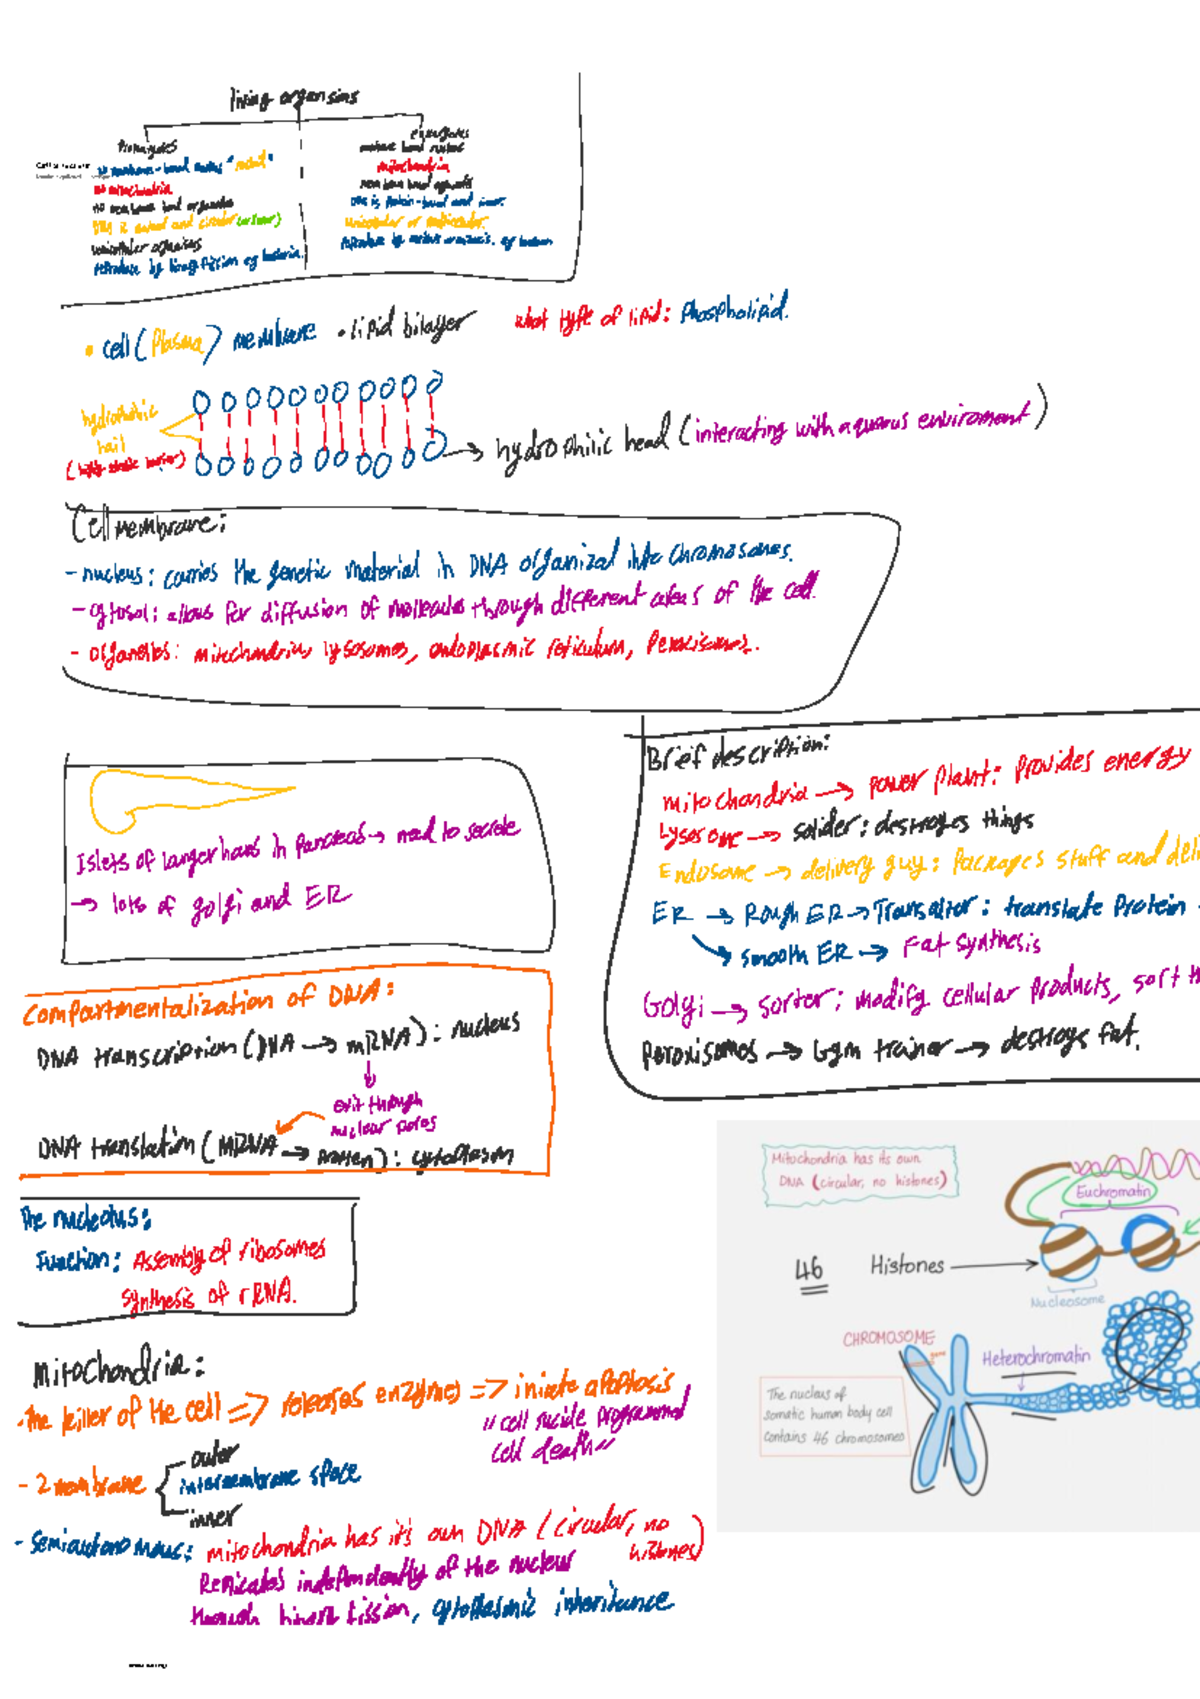 living organsims
Prokaryotes
no membrane-bound nucleus "nucleoid"
no mitochondria
no membrane bound organelles
DNA is naked and circular
unicellular organisms
reproduce by binary fission eg bacteria.
eukaryotes
membrane bound nucleus
mitochondria
membrane bound organelles
DNA is protein-bound and linear.
unicellular or multicellular.
• cell (Plasma) membrane • lipid bilayer what type of lipid: Phospholipid.
hydrophobic
tail
hydrophilic head (interacting with aquaous enviroment)
Cell membrane:
- nucleus: carries the genetic material in DNA organized into chromosomes.
- cytosol: allows for diffusion of molecules through different areas of the cell.
- organelles: mitochondria, lysosomes, endoplasmic reticulum, Peroxisomes.
Brief description:
mitochondria → power plant: provides energy
Lysosome → solider: destroyes things
Endosome → delivery guy: Packages stuff and deli
ER → Rough ER → Transaltor: translate Protein
→ smooth ER → Fat synthesis
Golgi → sorter: modify cellular products, sort th
Peroxisomes → Gym trainer → destroys fat.
Islets of langerhans in Pancreas → need to secrete
→ lots of golgi and ER
Compartmentalization of DNA:
DNA transcription (DNA → mRNA): nucleus
↓
exit through
nuclear pores
DNA translation (mRNA → protien): cytoplasm
The nucleolus:
Function: Assembly of ribosomes
synthesis of rRNA.
Mitochondria has its own
DNA (circular, no histones)
Euchromatin
46
Histones
Nucleosome
CHROMOSOME
gene
Heterochromatin
The nucleus of
somatic human body cell
contains 46 chromosomes
Mitochondria:
- The killer of the cell => releases enzymes => iniate apoptosis
"cell sucide programmed
cell death"
- 2 membrane
outer
intermembrane space
inner
- Semiautonomous: mitochondria has it's own DNA (circular, no
histones)
Replicates independently of the nuclear
through binary fission, cytoplasmic inheritance